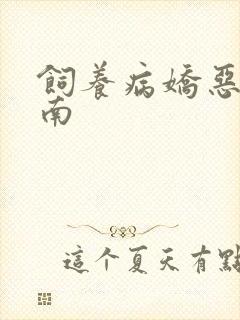 飼養病嬌惡
南
這个夏天有點